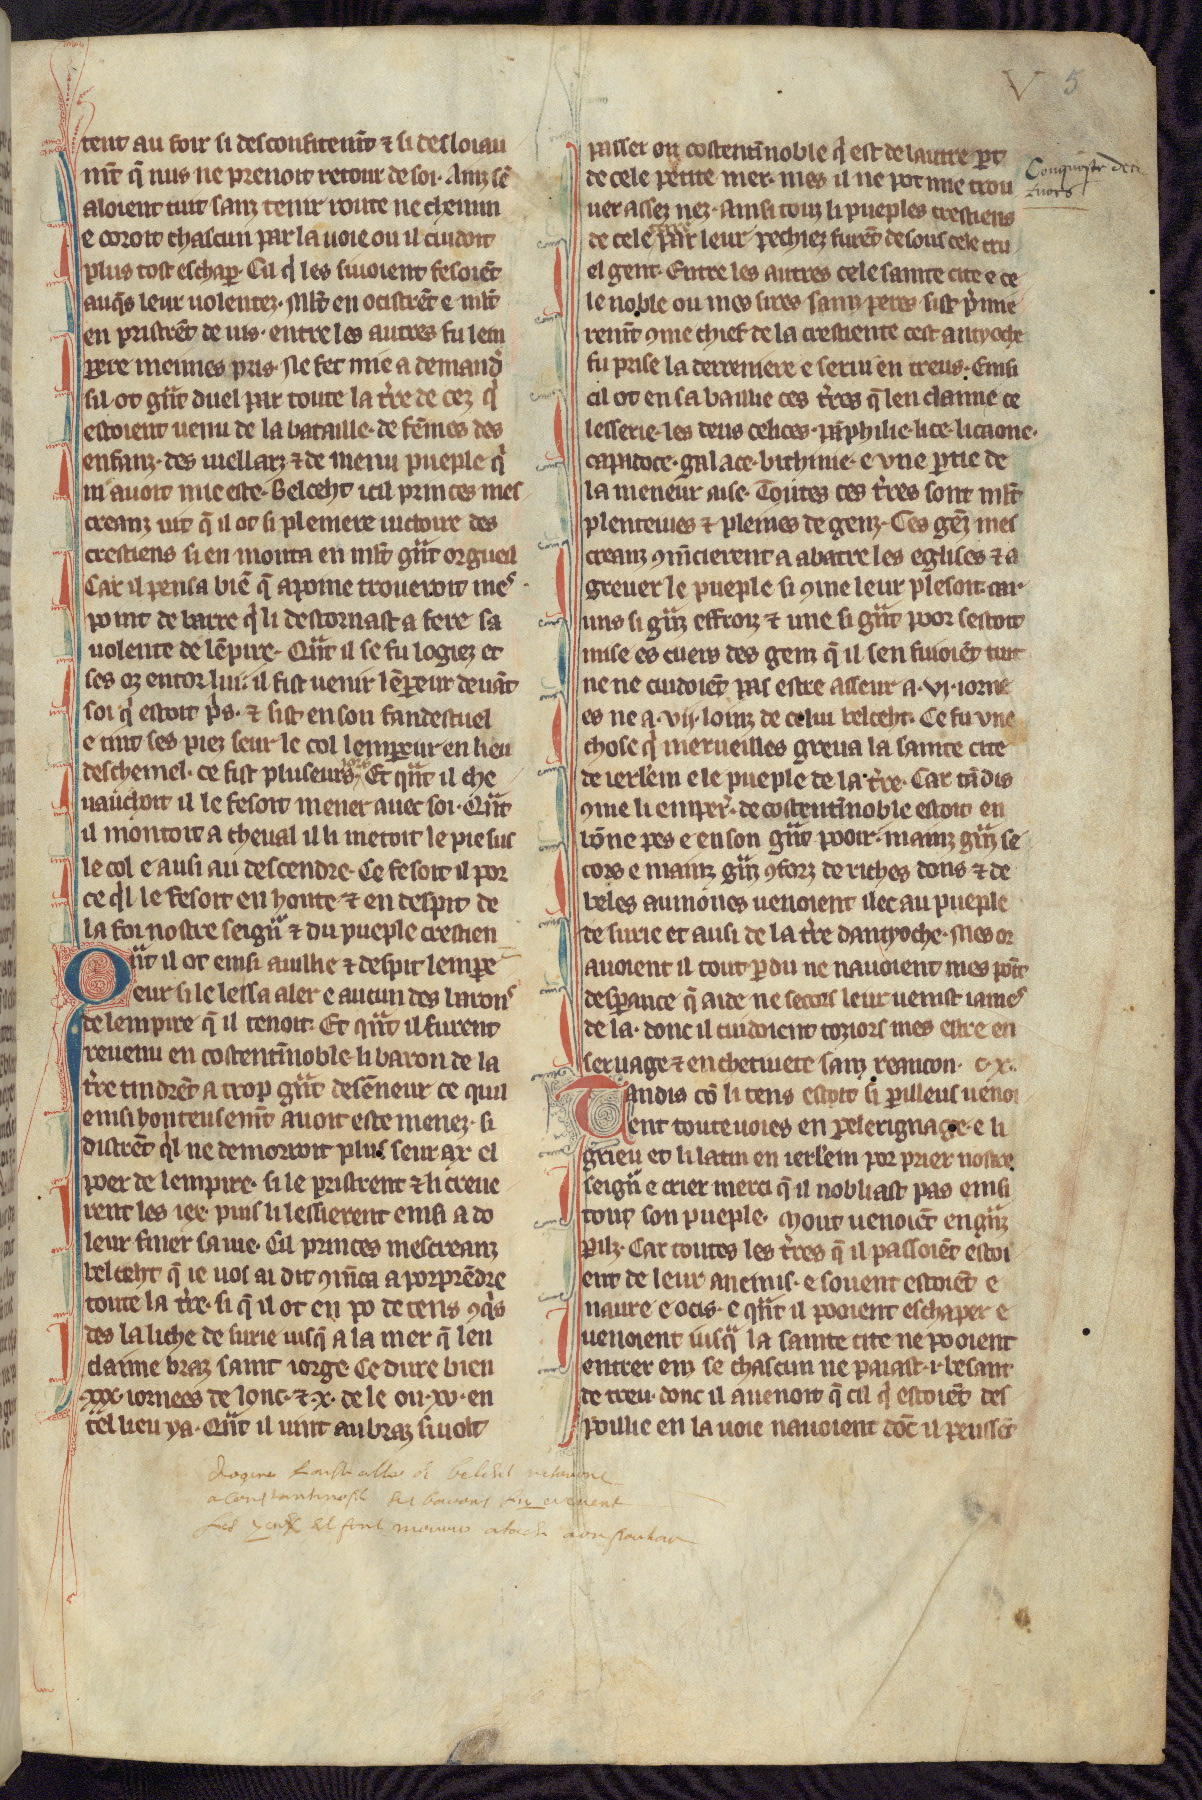 V 5
tent au foir si desconfitemt̄ ⁊ si desloiau
mt̄ q̄ nus ne prenoit retour de soi. Ainz sē
aloient tuit sanz tenir route ne chemin
e coroit chascun par la uoie ou il cuidoit
plus tost eschap̲. Cil q̇ les siuoient fesoiēt
auq̄s leur uolentez. Ml̄t en ocistrēt e ml̄t
en pristrēt de uis. entre les autres fu lem
p̲ere meimes pris. Ne fet mie a demand̾
sil ot gūt duel par toute la t̄re de cez q̇
estoient uenu de la bataille. de fēmes des
enfanz. des uiellarz ⁊ de menu pueple q̇
ni auoit mie este. Belceht icil princes mes
creanz uit q̄ il ot si pleniere uictoire des
crestiens si en monta en ml̄t gūt orgueil
Car il pensa biē q̄ apoine troueroit mes
point de barre q̇ li destornast a fere sa
uolente de lēpire. Qūt il se fu logiez et
ses oz entor lui. il fist uenir lēp̲eur deuāt
soi q̇ estoit p̄s. ⁊ sist en son faudestuel
e tint ses piez seur le col lemp̲eur en lieu
deschemel. ce fist pluseurs foiz. Et qūt il che
uauchoit il le fesoit mener auec soi. Qūt
il montoit a cheual il li metoit le pie sus
le col e ausi au descendre. Ce fesoit il por
ce q̇l le fesoit en honte ⁊ en despit de
la foi nostre seign̄ ⁊ du pueple crestien
Qūt il ot einsi auillie ⁊ despit lemp̲e
eur si le lessa aler e aucun des barons
de lempire q̄ il tenoit. Et qūt il furent
reuenu en costentīnoble. li baron de la
t̄re tindrēt a trop gūt desēneur ce quil
einsi honteusemt̄ auoit este menez. si
distrēt q̇l ne demorroit plus seur ax el
poer de lempire. si le p̲istrent ⁊ li creue
rent les iex. puis li lessierent einsi a do
leur finer sa uie. Cil princes mescreanz
belceht q̄ ie uos ai dit 9m̄ca a porprēdre
toute la t̄re. si q̄ il ot en po de tens 9q̄s
des la liche de surie iusq̄ a la mer q̄ len
claime braz saint iorge Ce dure bien
.xxx. iornees de lonc. ⁊ .x. de le ou .xv. en
tel lieu ya. Qūt il uint au braz siuolt
passer ou costentīnoble q̇ est de lautre p̲t
de cele petite mer. mes il ne pot mie trou
uer assez nez. Ainsi touz li pueples crestiens
de cele part par leur pechiez furēt desouz cele cru
el gent. Entre les autres cele sainte cite e ce
le noble ou mes sires sainz peres sist p̄mie
remt̄ 9me chief de la crestiente cest antyoche
fu prise la derreniere e serui en treus. Einsi
cil ot en sa baillie ces t̄res q̄ len claime ce
lesserie. les deus celices. pāphilie. lice. licaone.
capadoce. galace. bithinie. e vne p̲tie de
la meneur aise. Toutes ces t̄res sont ml̄t
plenteiues ⁊ pleines de genz. Ces gēz mes
creanz 9m̄cierent a abatre les eglises ⁊ a
greuer le pueple si 9me leur plesoit. car
uns si gūz effroiz ⁊ une si gūt poor sestoit
mise es cuers des genz q̄ il sen fuioiēt tuit
ne ne cuidoiēt pas estre asseur a .vj. iorne
es ne a .vij. loinz de celui belceht. Ce fu vne
chose q̇ merueilles greua la sainte cite
de ierl̄em e le pueple de la t̄re. Car tādis
9me li emper̾. de costentīnoble estoit en
bōne pes e en son gūt pooir. mainz gūz se
cors e mainz gūz 9forz de riches dons ⁊ de
beles aumones uenoient ilec au pueple
de surie et ausi de la t̄re dantyoche. Mes or
auoient il tout p̲du ne nauoient mes poīt
desp̲ance q̄ aide ne secors leur uenist iames
de la. donc il cuidoient toziors mes estre en
seruage ⁊ en chetiuete sanz reancon. c.x.
Tandis cō li tens estoit si p̲illeus uenoi
ent touteuoies en pelerignage. e li
grieu et li latin en ierl̄em por prier nostre
seign̄ e crier merci q̄ il nobliast pas einsi
touz son pueple. Mout uenoiēt en gūz
p̲ilz. Car toutes les t̄res q̄ il passoiēt estoi
ent de leur anemis. e souent estoiēt e
naure e ocis. e qūt il pooient eschaper e
uenoient iusq̄ la sainte cite ne pooient
entrer enz se chascun ne paiast .i. besant
de treu. donc il auenoit q̄ cil q̇ estoiēt des
poillie en la uoie nauoient dōt il peussēt
Conqueste de
turcs
a constantinople les barons luy creuent
les yeux et font mourir